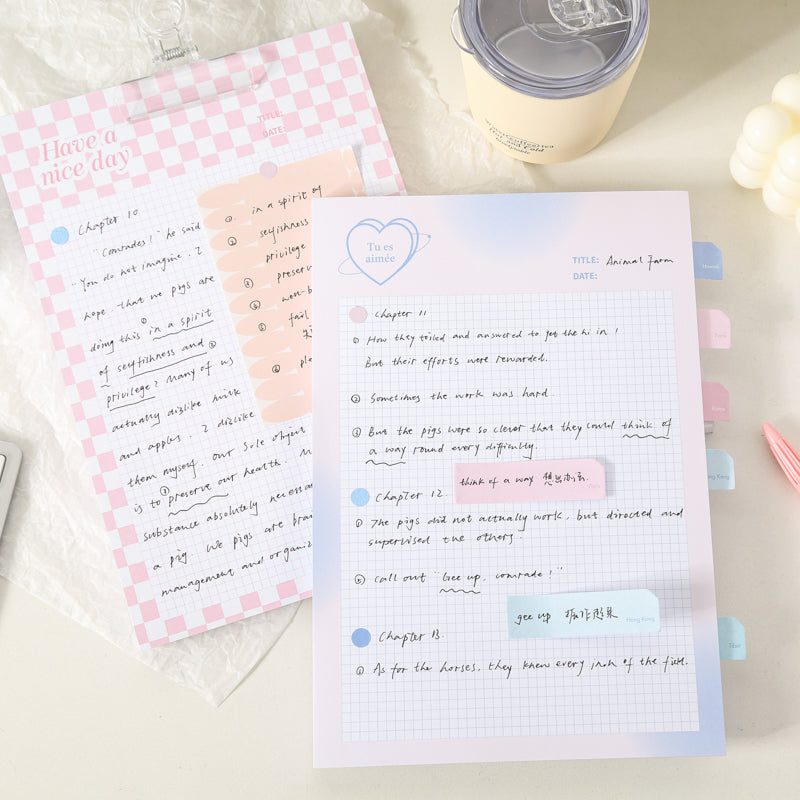 Have a
nice day
TITLE:
DATE:
Chapter 10
"Comrades!" he said
You do not imagine. I
hope. that we pigs are
doing this in a spirit
of selfishness and
privilege? Many of us
actually dislike milk
and apples. I dislike
them myself. our sole object
is to preserve our health. M
substance absolutely necessa
a pig. We pigs are bra
management and organiz
① in a spirit of
② selfishness
privilege
③ preserv
④ well-b
⑤ fail
⑥ ple
Tu es
aimée
TITLE: Animal Farm
DATE:
Chapter 11
① How they toiled and answered to get the hi in!
But their efforts were rewarded.
② Sometimes the work was hard.
③ But the pigs were so clever that they could think of
a way round every difficulty.
think of a way 想出办法.
Paris
Chapter 12.
① The pigs did not actually work. but directed and
supervised the others.
② call out "Gee up, comrade!"
gee up
Hong Kong
Chapter 13.
① As for the horses. they knew every inch of the field.
Hawaii
Paris
Rome
Hong Kong
Tibet